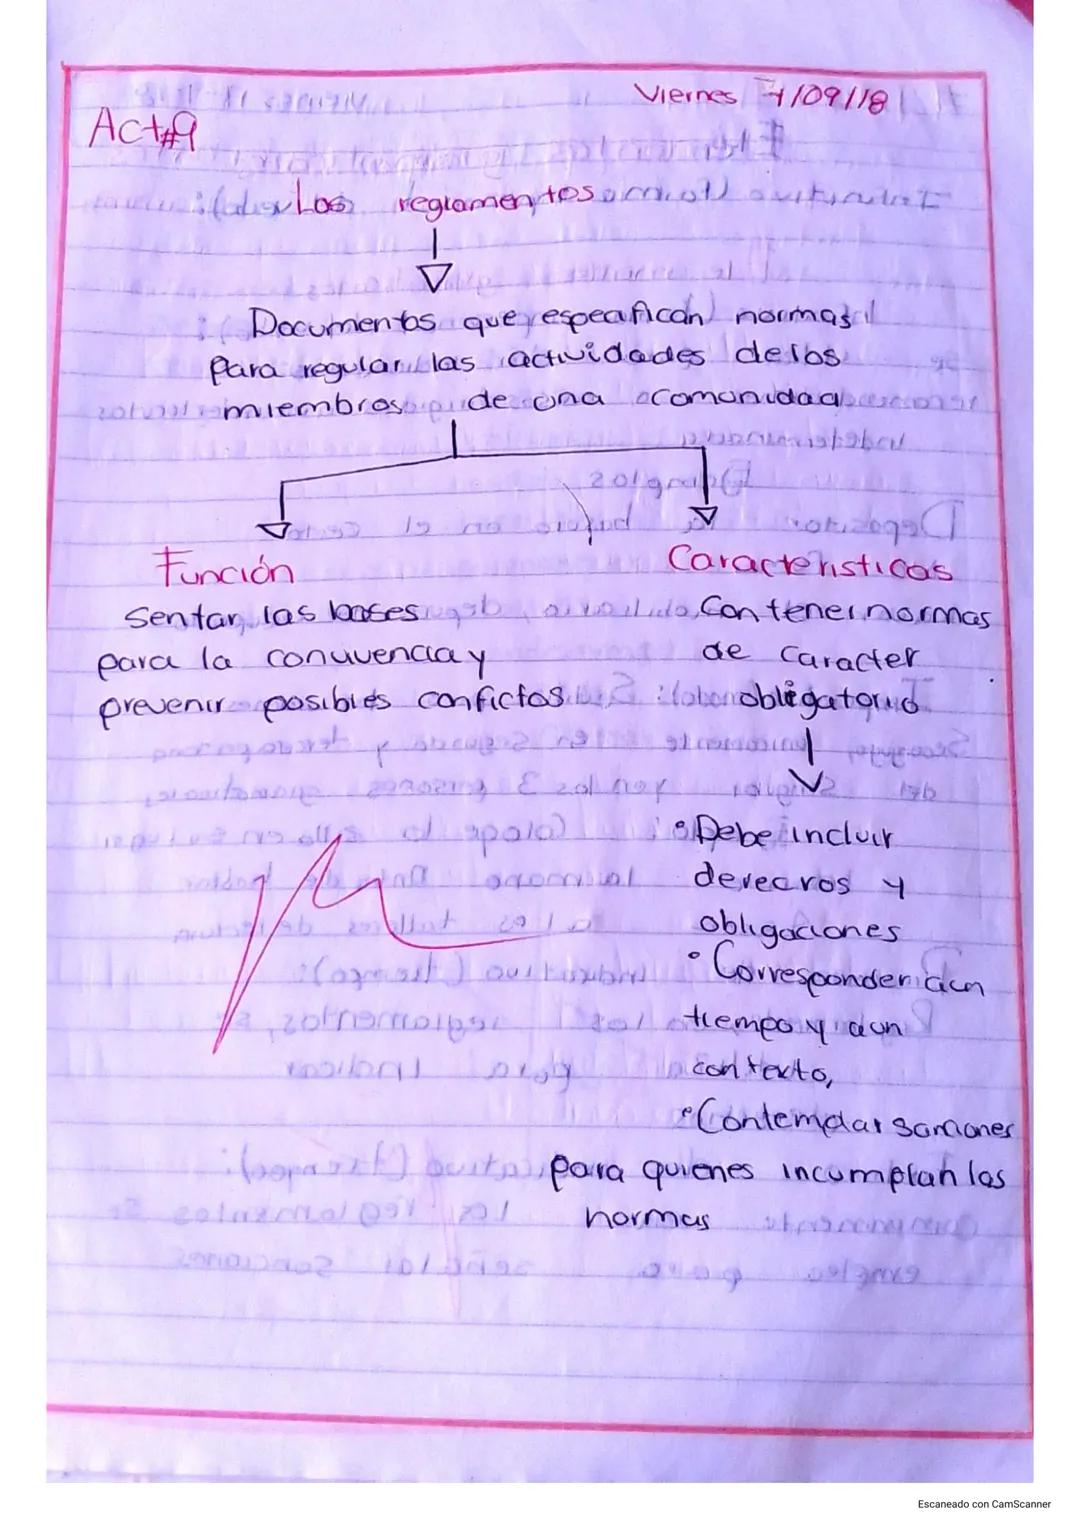 Viernes 7/09/18
Act#9
Los reglamentos
Documentos que especifican normas
para regular las actividades de los
miembros de una comunidad
Función
Sentar las bases
para la convivencia y
prevenir posibles confictos
Caracteristicas
Contener normas
de caracter
obligatorio
• Debe incluir
derechos y
obligaciones
• Corresponder a un
tiempo y a un
contexto,
• Contemplar sanciones
para quienes incumplan las
normas
Escaneado con CamScanner